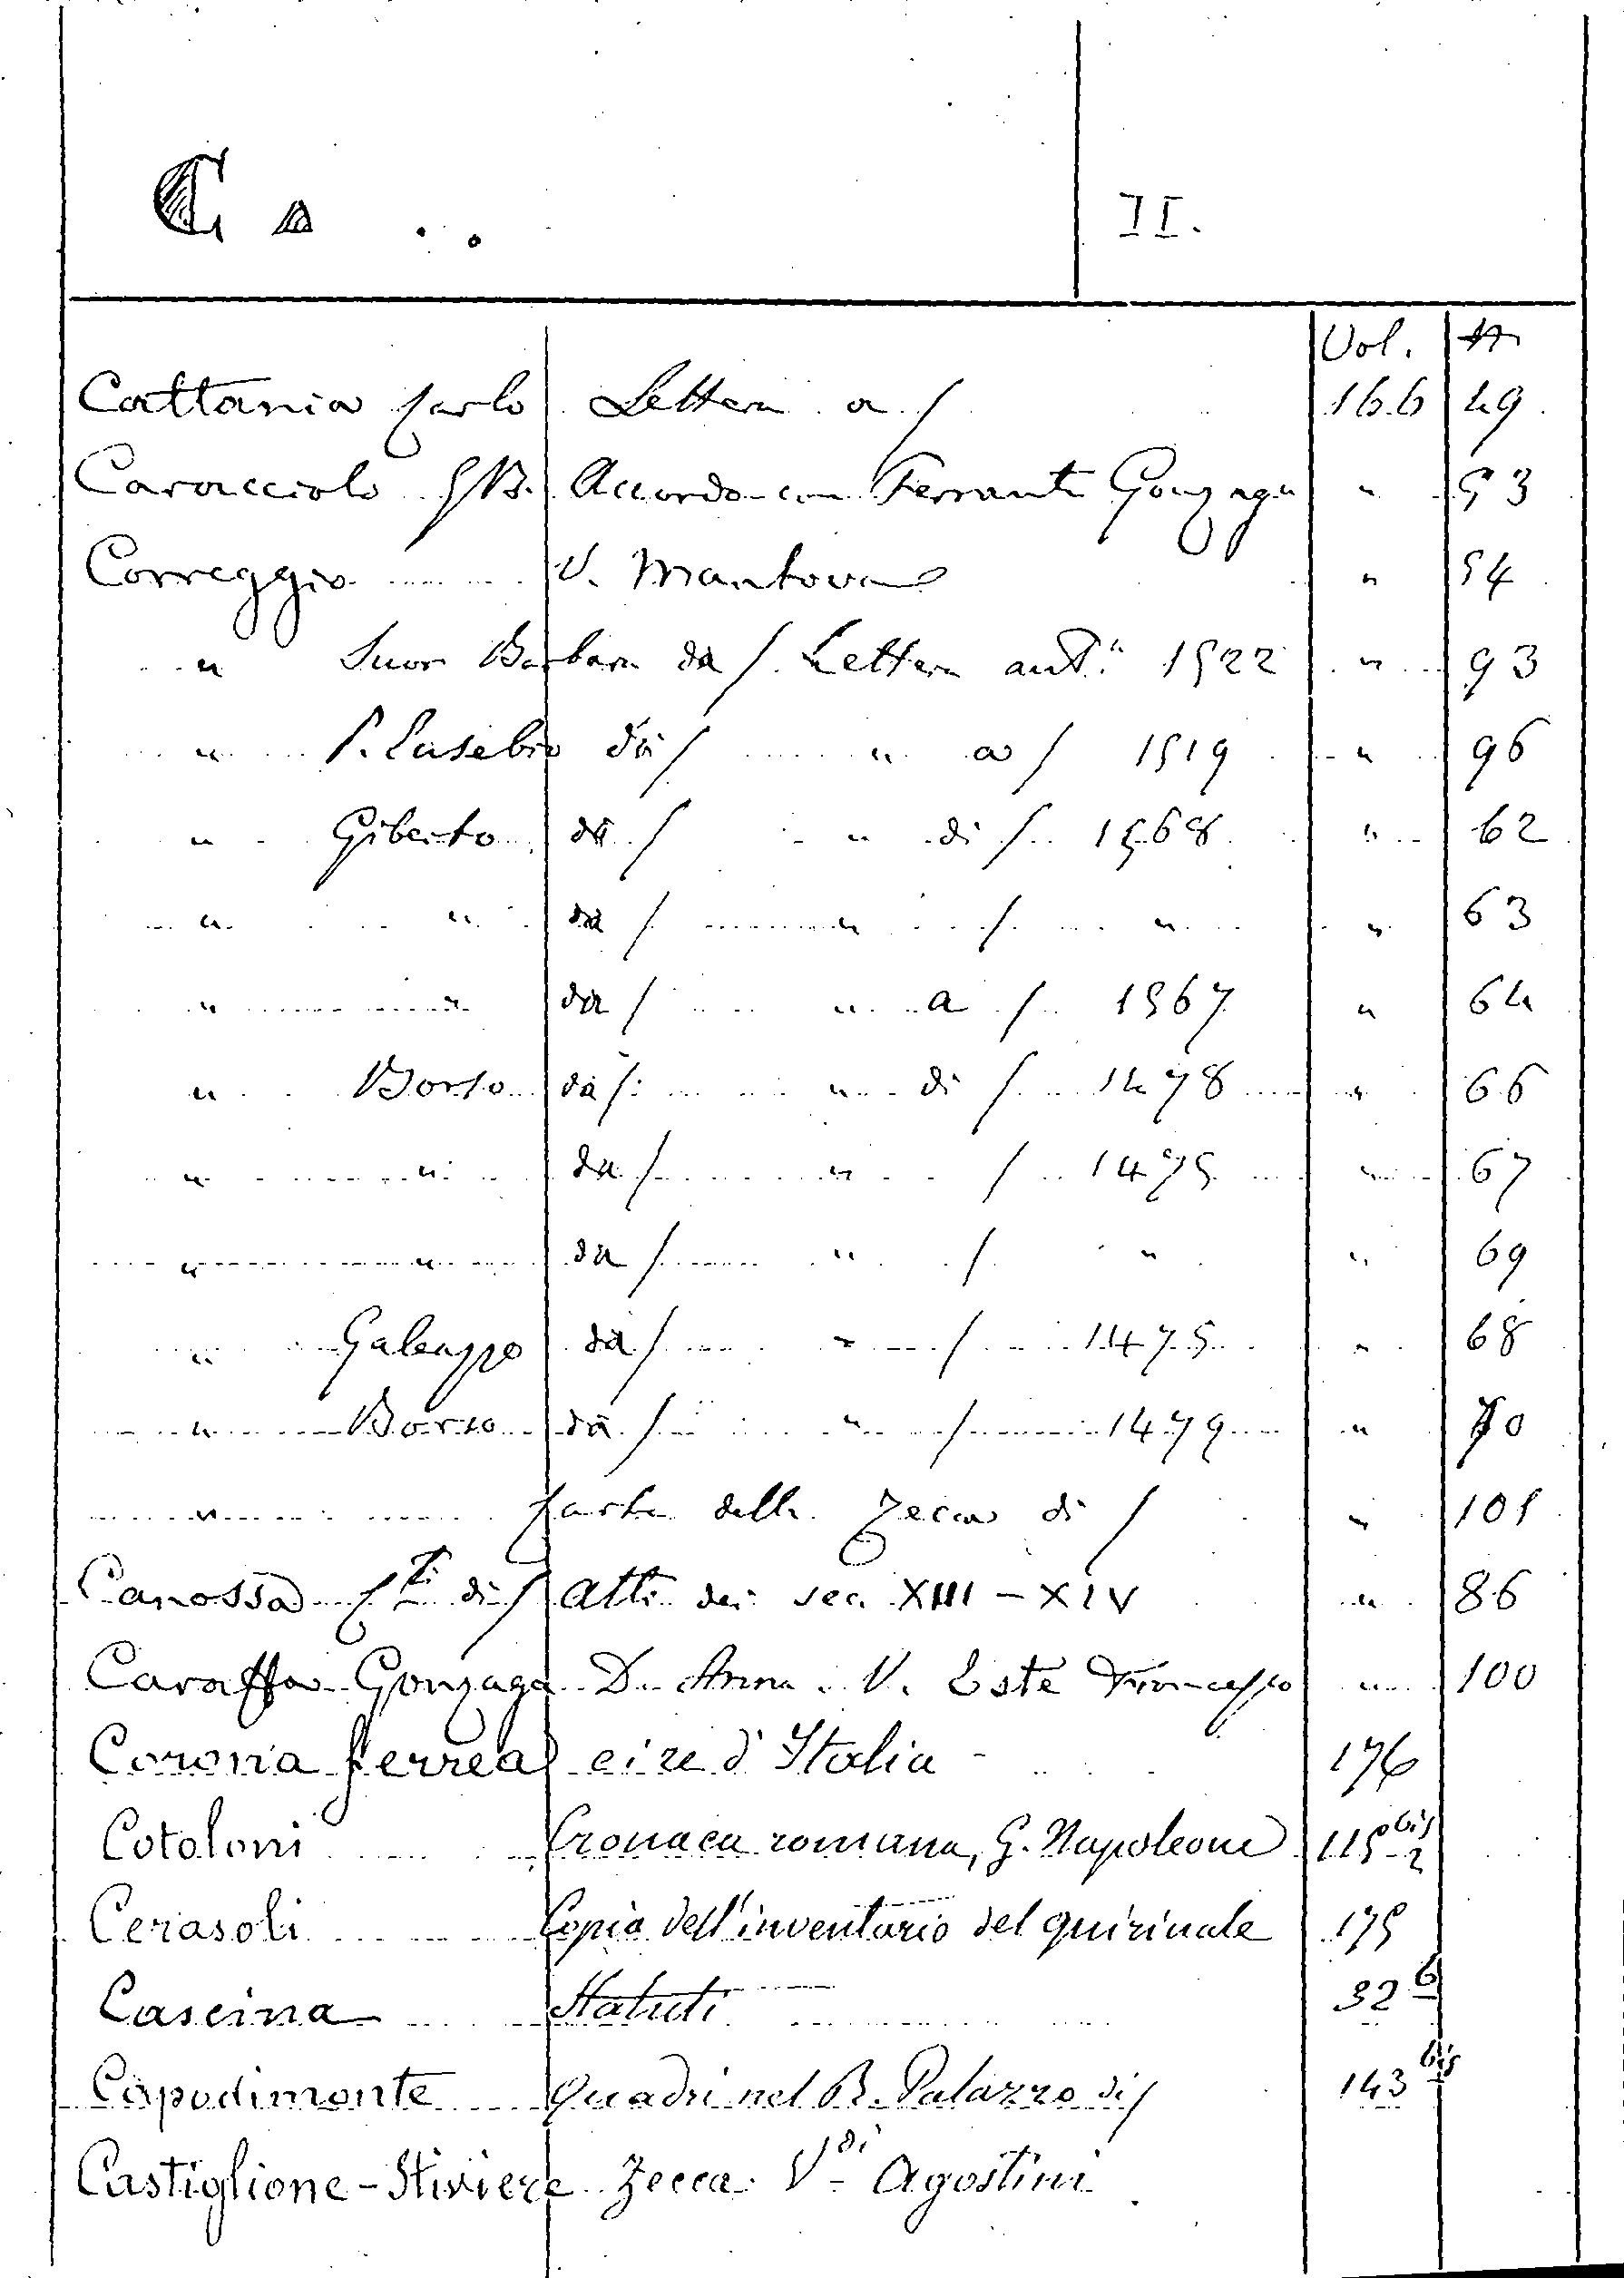 Ca .. II.
Vol. N
Cattania Carlo Lettera a / 166 49
Caracciolo G B. Accordo con Ferrante Gonzaga " 53
Correggio V. Mantova " 54
" Suor Barbara da / Lettera aut.a 1522 " 93
" P. Eusebio da / " a / 1519 " 96
" Giberto da / " di / 1568 " 62
" " da / " / " " 63
" " da / " a / 1567 " 64
" Borso da / " di / 1478 " 66
" " da / " / 1475 " 67
" " da / " / " " 69
" Galeazzo da / " / 1475 " 68
" Borso da / " / 1479 " 70
" Carte della Zecca di / " 101
Canossa Cti di / Atti dei sec. XIII - XIV " 86
Caraffa Gonzaga D. Anna. V. Este Francesco " 100
Corona ferrea e i re d'Italia - 176
Cotoloni Cronaca romana, G. Napoleone 115 bis 2
Cerasoli Copia dell'inventario del quirinale 175
Cascina Statuti 32 b
Capodimonte Quadri nel R. Palazzo di / 143 bis
Castiglione-Stiviere Zecca. Vdi Agostini